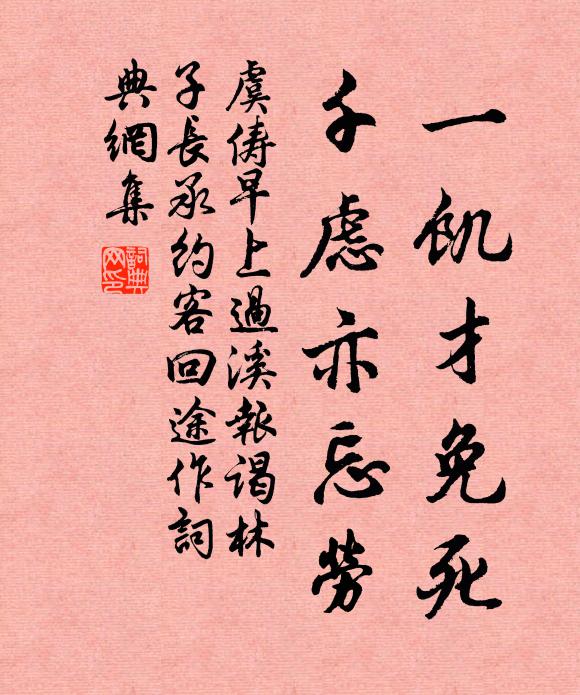 一飢才免死
千慮亦忘勞
虞儔早上過溪報謁林
子長承約客回途作詞
典網集
詞典
网印